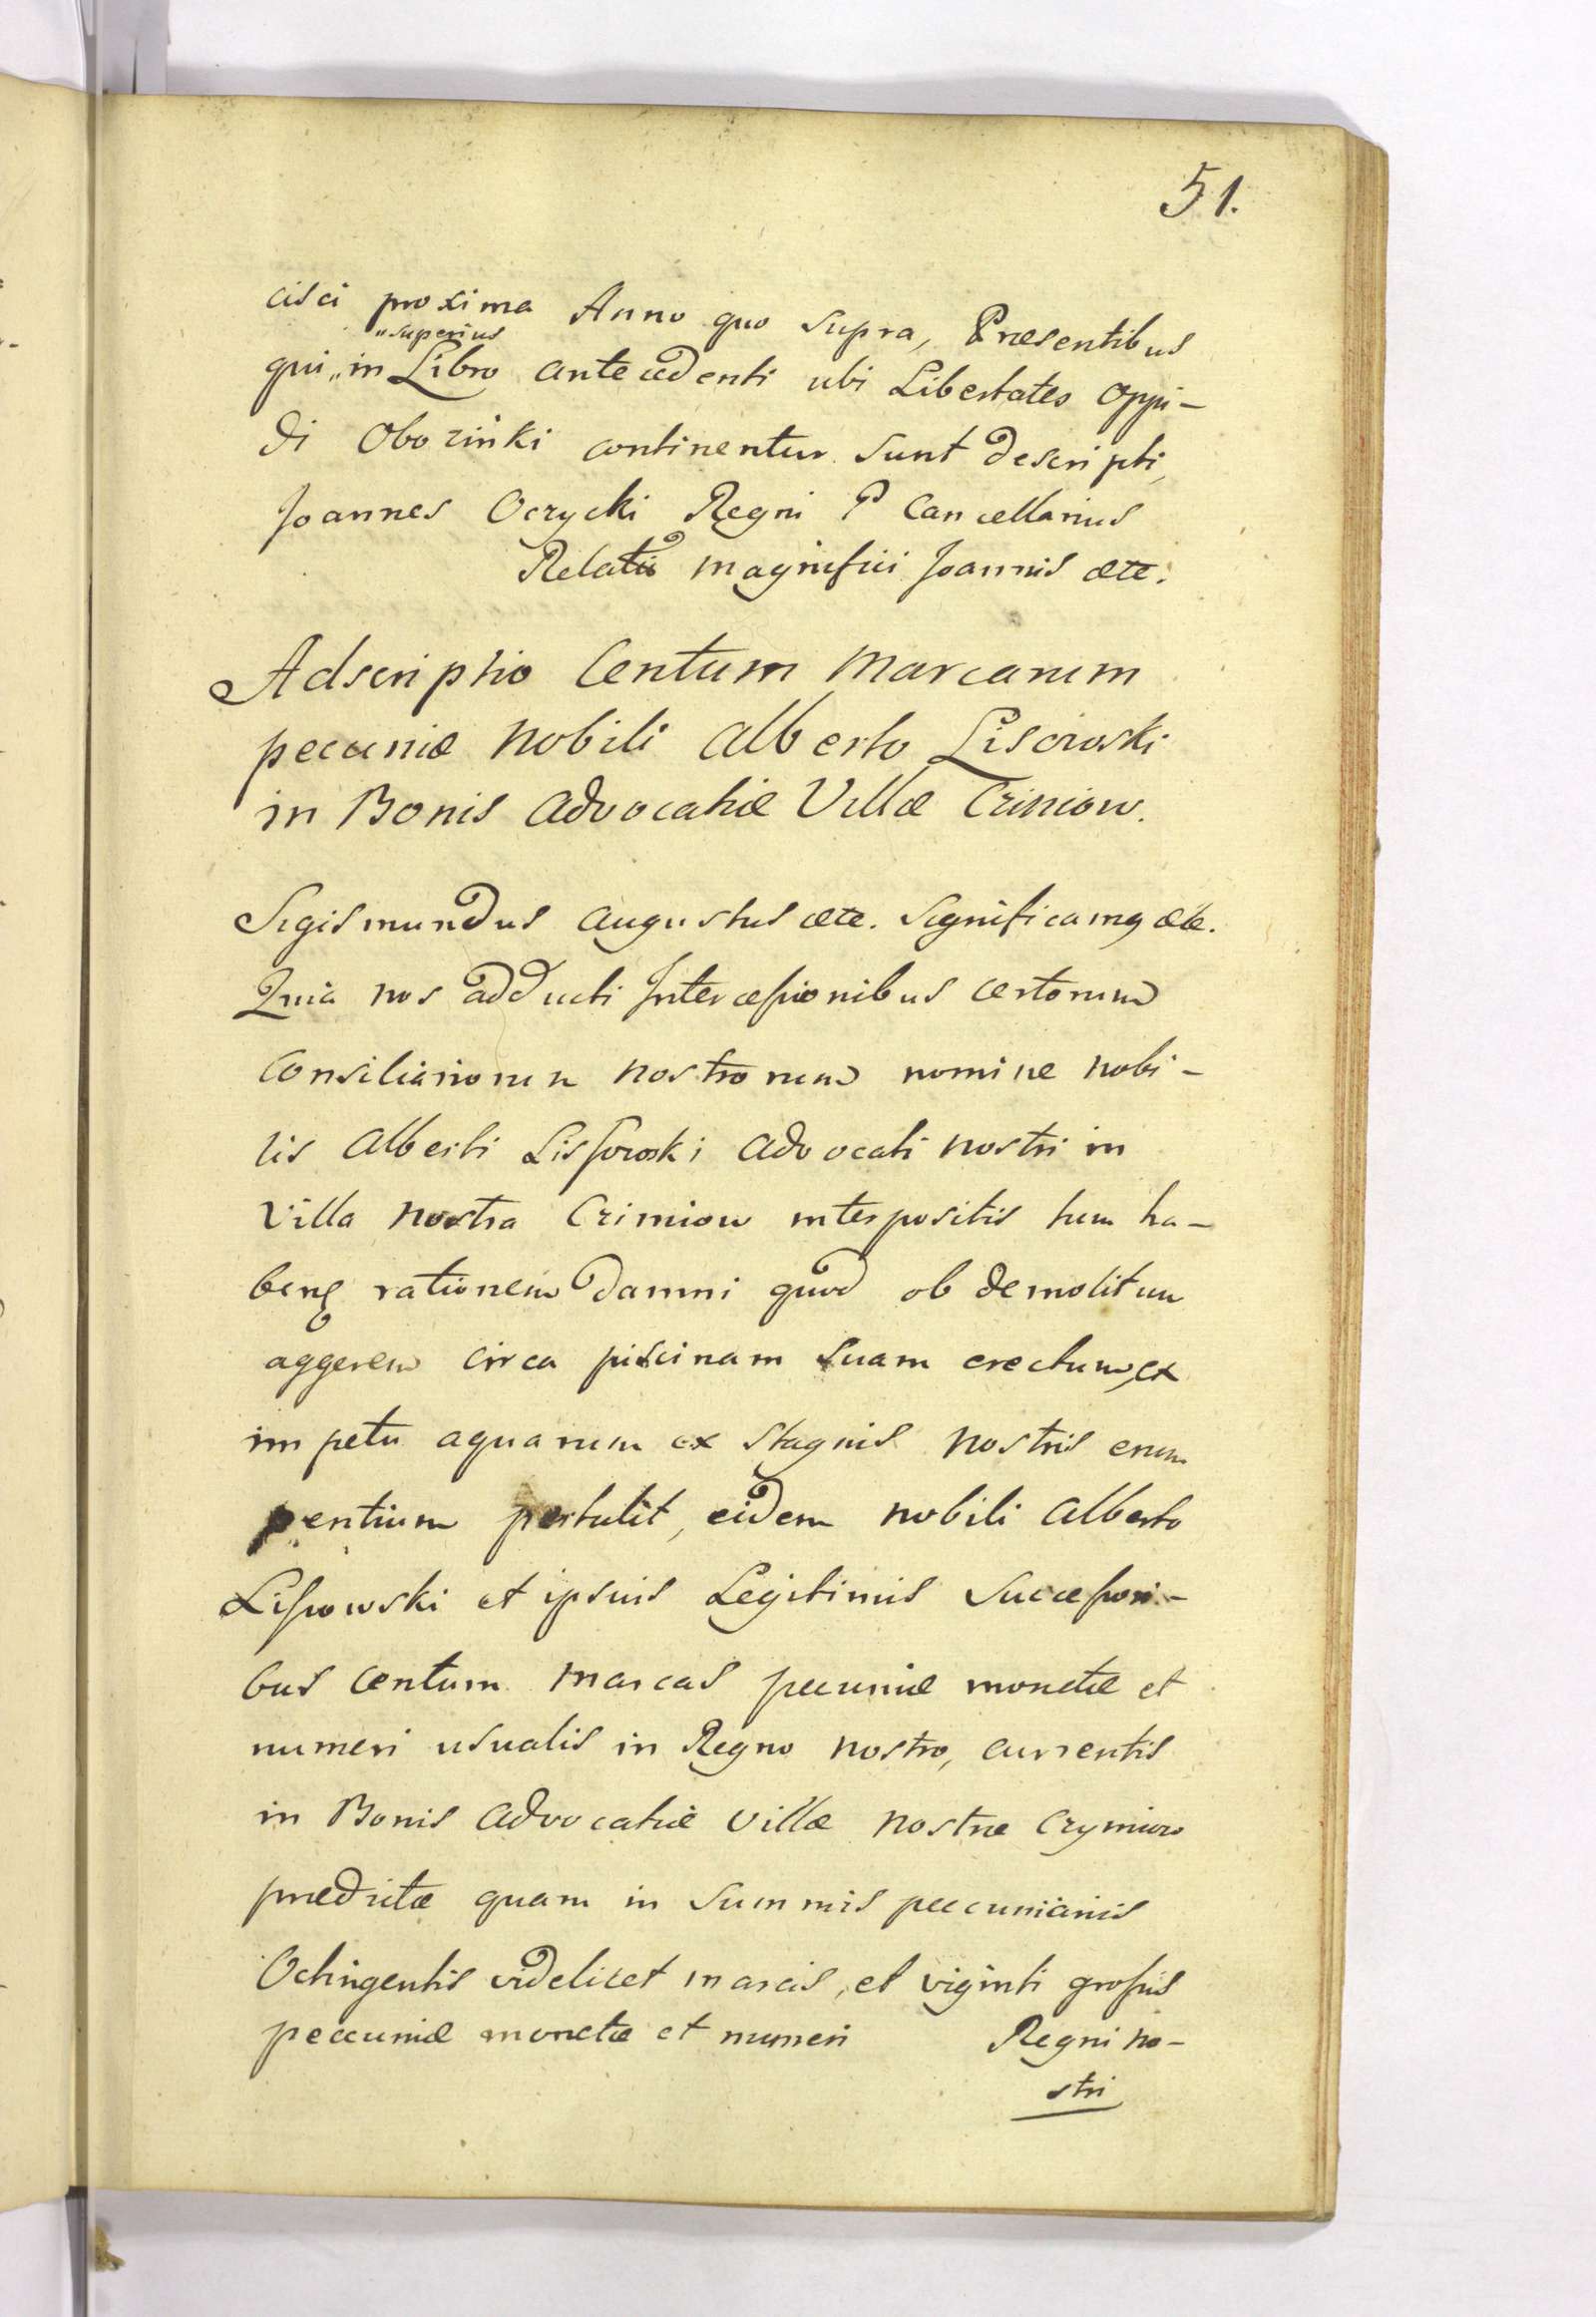 51.
cisci proxima Anno quo supra, Præsentibus
"superius
qui " in Libro antecedenti ubi Libertates oppi-
di Obozinki continentur sunt descripti,
Joannes Ocrycki Regni P Cancellarius
Relatio magnifici Joannis etc.
Adscriptio Centum Marcarum
pecuniæ Nobili Alberto Lisowski
in Bonis Advocatiæ Villæ Czimiow.
Sigismundus Augustus etc. Significamq etc.
Quia nos adducti Intercessionibus certorum
Consiliariorum nostrorum nomine Nobi-
lis Alberti Lissowski Advocati nostri in
Villa Nostra Czimiow interpositis tum ha-
benq rationem damni quod ob demolitum
aggerem circa piscinam suam erectum, ex
impetu aquarum ex Stagnis nostris erum
pentium pertulit, eidem nobili Alberto
Lissowski et ipsius Legitimis Successori-
bus Centum Marcas pecuniæ monetæ et
numeri usualis in Regno nostro, currentis
in Bonis Advocatiæ Villæ Nostræ Czymiow
prædictæ quam in Summis peccuniariis
Octingentis videlicet marcis, et viginti grossis
peccuniæ monetæ et numeri Regni no-
stri